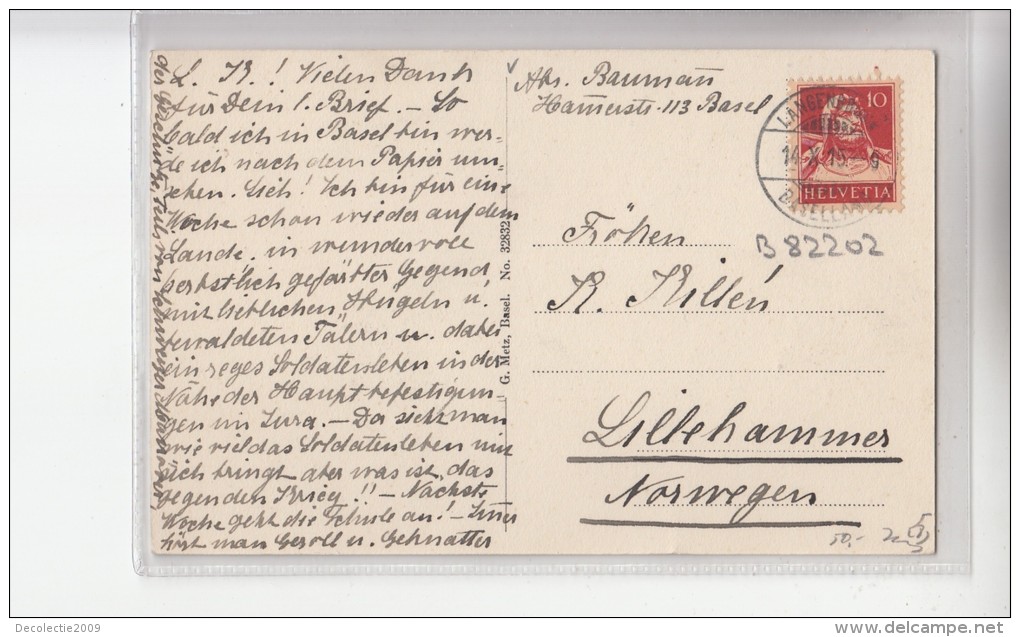 L. K.! Vielen Dank
für Dein l. Brief. – So
bald ich in Basel bin wer-
de ich nach dem Papier um-
sehen. Lieb! Ich bin für eine
Woche schon wieder auf dem
Lande. in wundervoll
herbstlich gefärbter Gegend
mit lieblichen Hügeln u.
bewaldeten Tälern u. dabei
ein reges Soldatenleben in der
Nähe der Hauptbefestigun-
gen im Jura. – Da sieht man
wie viel das Soldatenleben mit
sich bringt aber was ist das
gegen den Krieg!! – Nächste
Woche geht die Schule an! –
hört man Geroll u. Geknatter
der Geschütze, teils von schweizer
Abs. Baumann
Hamerstr. 113 Basel
10
HELVETIA
LANGENBRUCK
14.X.15.–9
BASELLAND
B 82202
Fröken
K. Killén
Lillehammer
Norwegen
G. Metz, Basel. No. 32832
50.-
Decolectie2009
delcampe.net